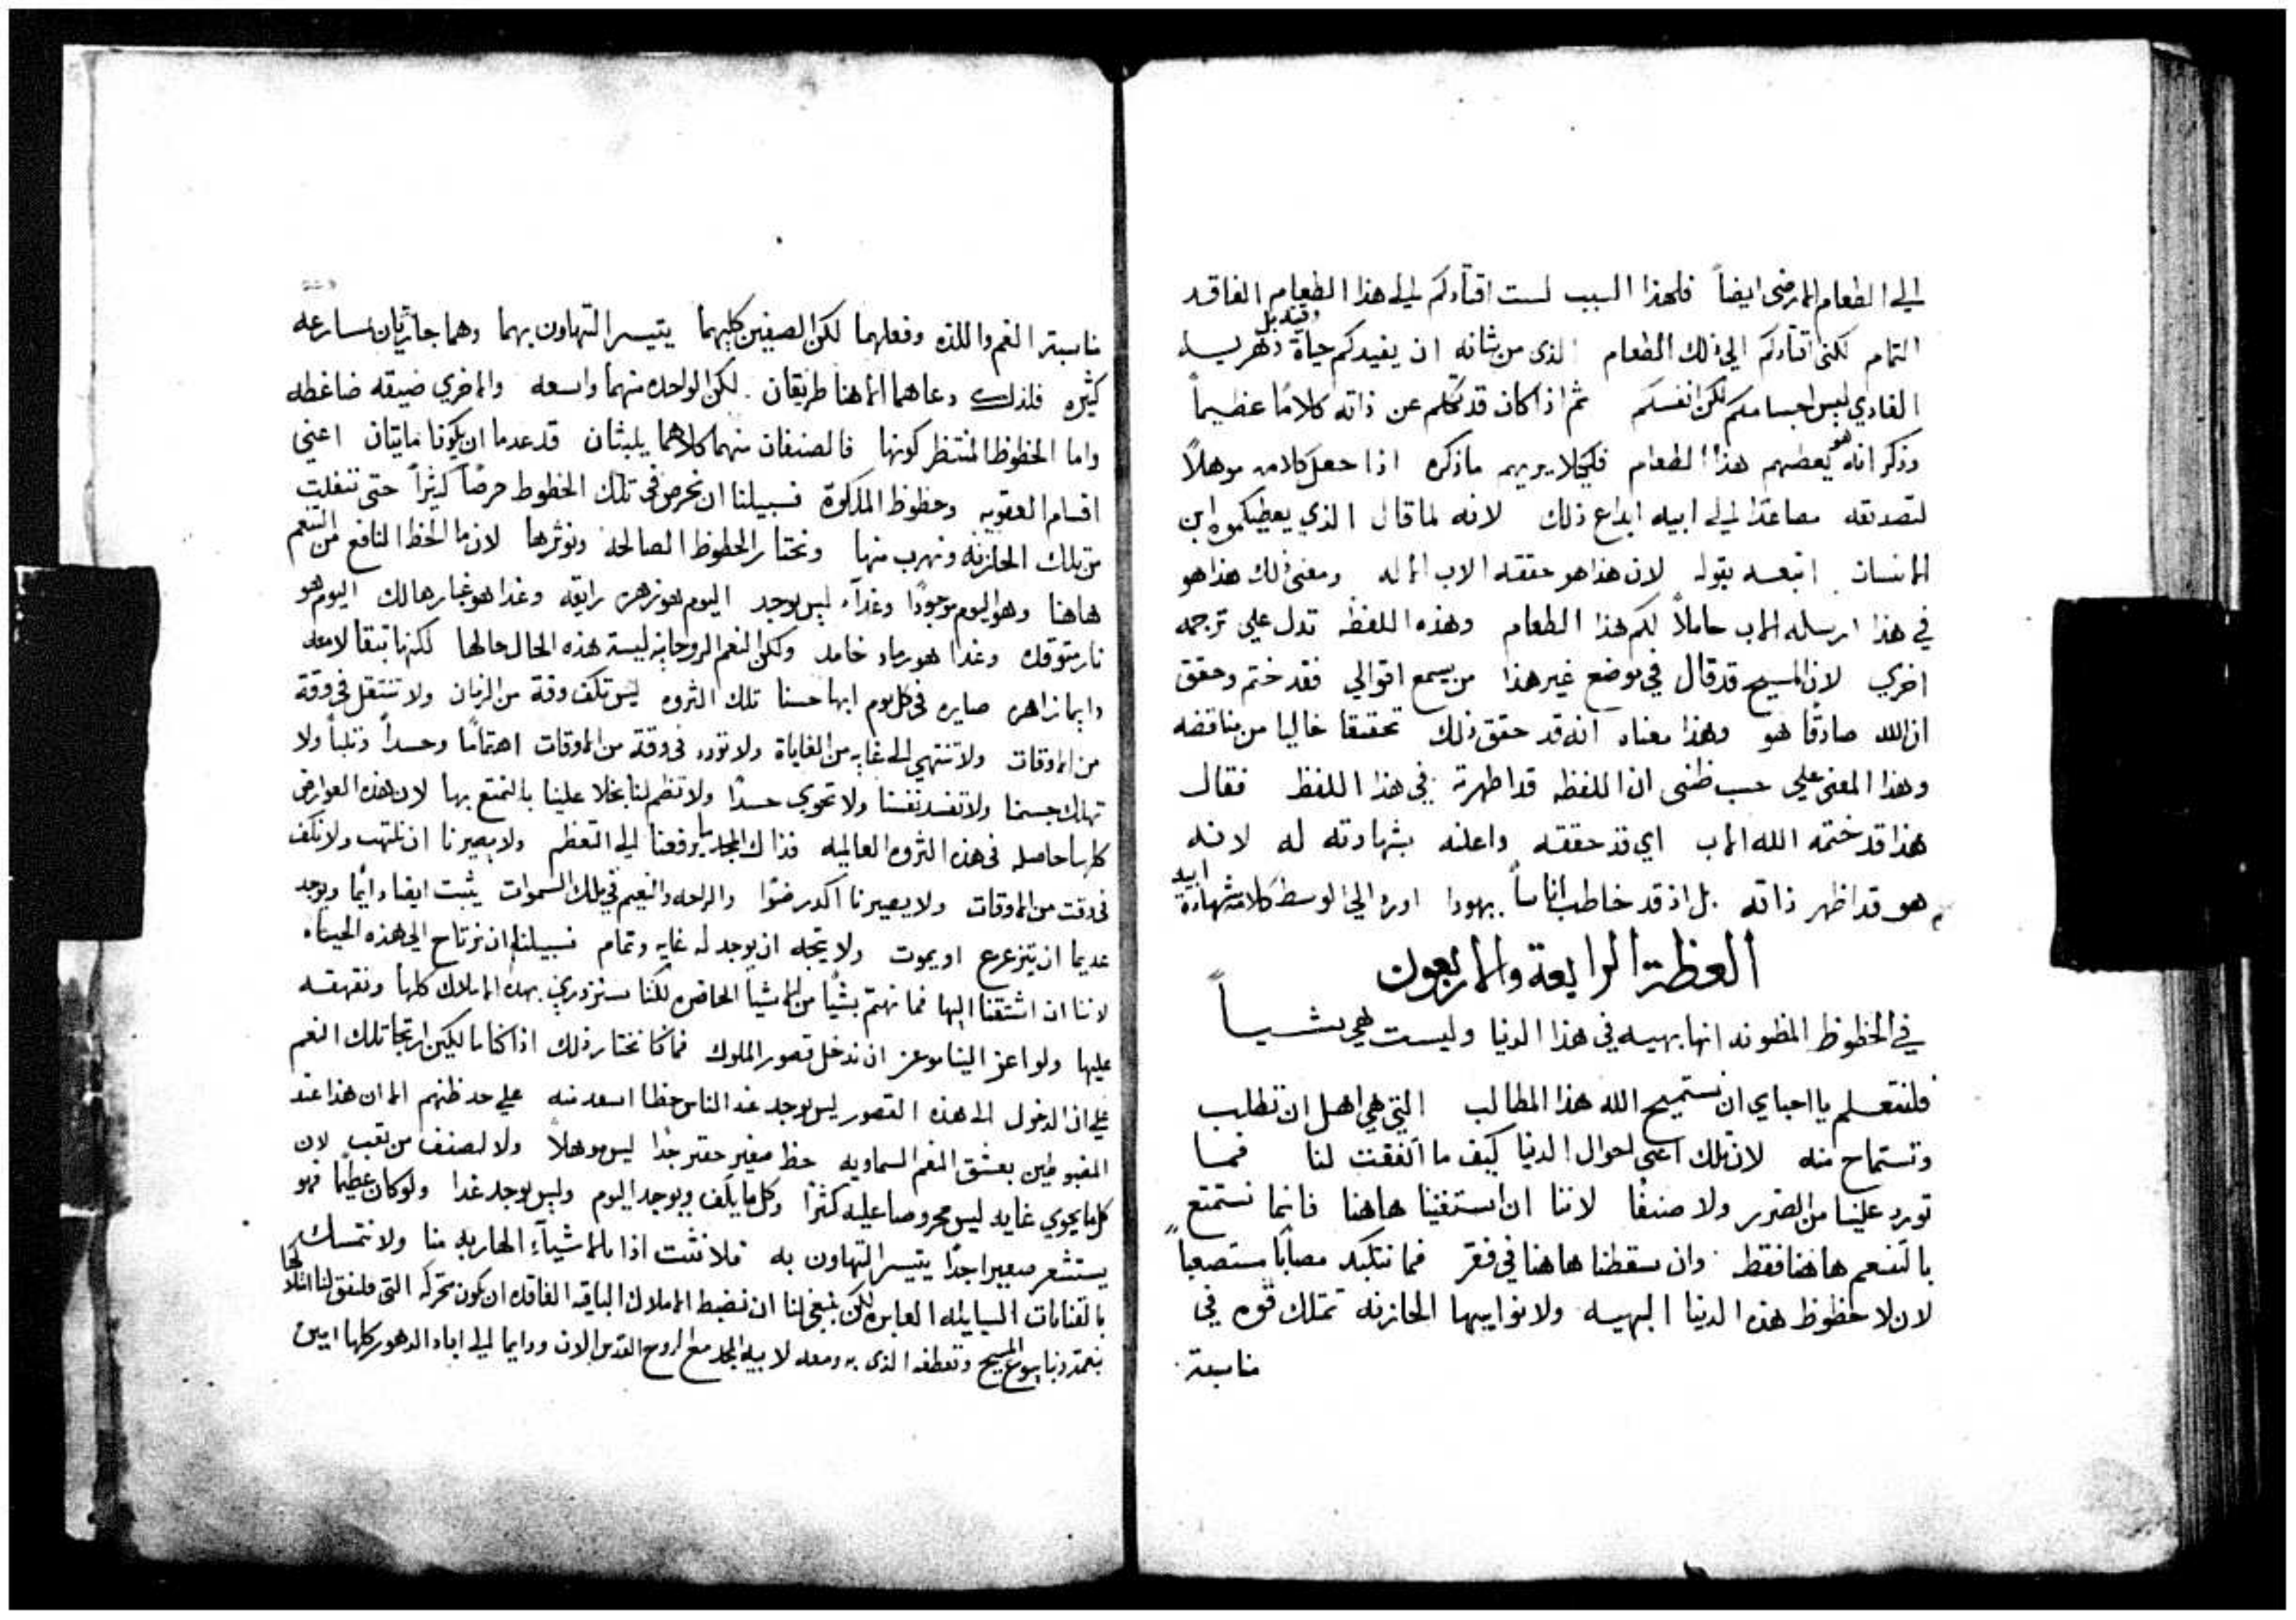 الي الطعام الارضى ايضاً فلهذا السبب لست اقتادكم الي هذا الطعام الفاقد
التمام لكنى اقتادكم الي ذلك الطعام الذى من شانه ان يفيدكم حياة دهريه
الغادي ليس اجسامكم لكن انفسكم ثم اذ كان قد تكلم عن ذاته كلامًا عظيماً
وذكر انه هو يعطيهم هذا الطعام فلكيلا يريهم ماذكره اذا جعل كلامه موهلاً
لتصديقه مصاعدا الي ابيه ابداع ذلك لانه لما قال الذي يعطيكموه ابن
الانسان اتبعه بقوله لان هذا هو حققه الاب الاله ومعنى ذلك هذا هو
في هذا ارسله الاب حاملاً لكم هذا الطعام وهذه اللفظه تدل علي ترجمه
اخري لان المسيح قد قال في موضع غير هذا من يسمع اقوالي فقد ختم وحقق
ان الله صادقًا هو وهذا معناه انه قد حقق ذلك تحقيقا خاليا من مناقضه
وهذا المعنى علي حسب ظنى ان اللفظه قد اظهرة في هذا اللفظ فقال
هذا قد ختمه الله الاب اي قد حققه واعلنه بشهادته له لانه
هو قد اظهر ذاته بل اذ قد خاطب اناساً يهودا اورد الي الوسط كلام شهادة ابيه
العظة الرابعة والاربعون
في الحظوظ المظنونه انها بهيه في هذا الدنيا وليست هي شيئاً
فلنتعلم يا احباي ان نستميح الله هذا المطالب التي هي اهل ان تطلب
وتستماح منه لان تلك اعنى احوال الدنيا كيف ما اتفقت لنا فما
تورد علينا من الضرر ولا صنفًا لاننا ان استغنينا هاهنا فانما نستمتع
بالتنعم هاهنا فقط وان سقطنا هاهنا في فقر فما نتكبد مصابًا مستصعباً
لان لا حظوظ هذه الدنيا البهيه ولا نوايبها الحازنه تمتلك قوه في
مناسبة
مناسبة الغم واللذه وفعلهما لكن الصنفين كليهما يتيسر التهاون بهما وهما جاريان بسارعه
كثيره فلذلك دعاهما الاهنا طريقان لكن الواحده منهما واسعه والاخري ضيقه ضاغطه
واما الحظوظ المنتظر كونها فالصنفان منهما كلاهما يلبثان قد عدما ان يكونا مايتان اعنى
اقسام العقوبه وحظوظ الملكوة فسبيلنا ان نحرص في تلك الحظوظ حرصًا كثيراً حتى ننفلت
من تلك الحازنه ونهرب منها ونختار الحظوظ الصالحه ونوثرها لان ما الحظ النافع من التنعم
هاهنا وهو اليوم موجودًا وغدآء ليس يوجد اليوم هو زهره رايقه وغدا هو غبار هالك اليوم هو
نار متوقده وغدا هو رماد خامد ولكن النعم الروحانيه ليسة هذه الحال حالها لكنها تبقا لامعه
دايما زاهره صايره في كل يوم ابها حسنا تلك الثروه ليس تكف وقة من الزمان ولا تنتقل في وقة
من الاوقات ولا تنتهي الى غايه من الغاياة ولا تورد في وقة من الاوقات اهتمامًا وحسداً وثلباً ولا
تهلك جسمنا ولا تفسد نفسنا ولا تحوي حسدًا ولا تظم لنا بخلا علينا بالتمتع بها لان هذه العوارض
كلها حاصله في هذه الثروه العالميه فذاك المجد ما يرفعنا الي التعظم ولا يصيرنا ان نلتهب ولا نكف
في وقت من الاوقات ولا يصيرنا اكدر ضوًا والراحه والنعيم في تلك السموات يثبت ايضا دايًما ويوجد
عديما ان يتزعزع او يموت ولا يتجه ان يوجد له غايه وتمام فسبيلنا ان نرتاح الي هذه الحيياه
لاننا ان اشتقنا اليها فما نهتم بشيًا من الاشيا الحاضره لكننا سنزدري بهذه الاملاك كلها ونقهقه
عليها ولو اعز الينا موعز ان ندخل قصور الملوك فما كنا نختار ذلك اذا كنا مالكين ارتجا تلك النعم
علي ان الدخول الى هذه القصور ليس يوجد عند الناس حظا اسعد منه علي حد ظنهم الا ان هذا عند
المغبوطين بعشق النعم السماويه حظ صغير حقير جدًا ليس موهلاً ولا لصنف من تعب لان
كل ما يحوي غايه ليس محروصا عليه كثرًا وكل ما يكف ويوجد اليوم وليس يوجد غدا ولو كان عظيمًا فهو
يستشعر صعيرا جدًا يتيسر التهاون به فلا نثت اذا بالاشيآء الهاربه منا ولا نتمسك
بالقنايات السيايله العابره لكن ينبغي لنا ان نضبط الاملاك الباقيه الفاقده ان يكون متحركه التى فليتفق لنا امتلاكها
بنعمة ربنا يسوع المسيح وتعطفه الذى به ومعه لابيه المجد مع الروح القدس الان ودايما الي اباد الدهور كلها امين